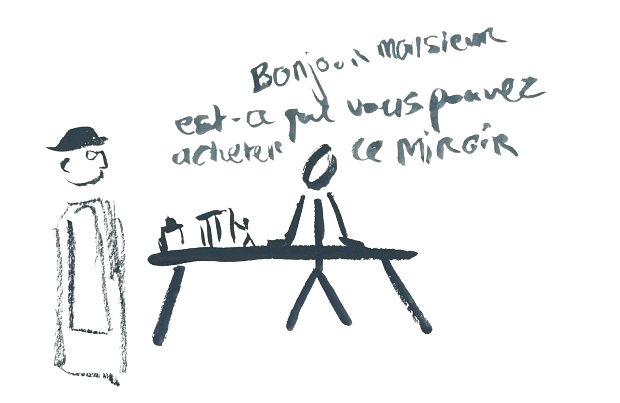 Bonjour monsieur
est-ce que vous pouvez
acheter ce MiROiR